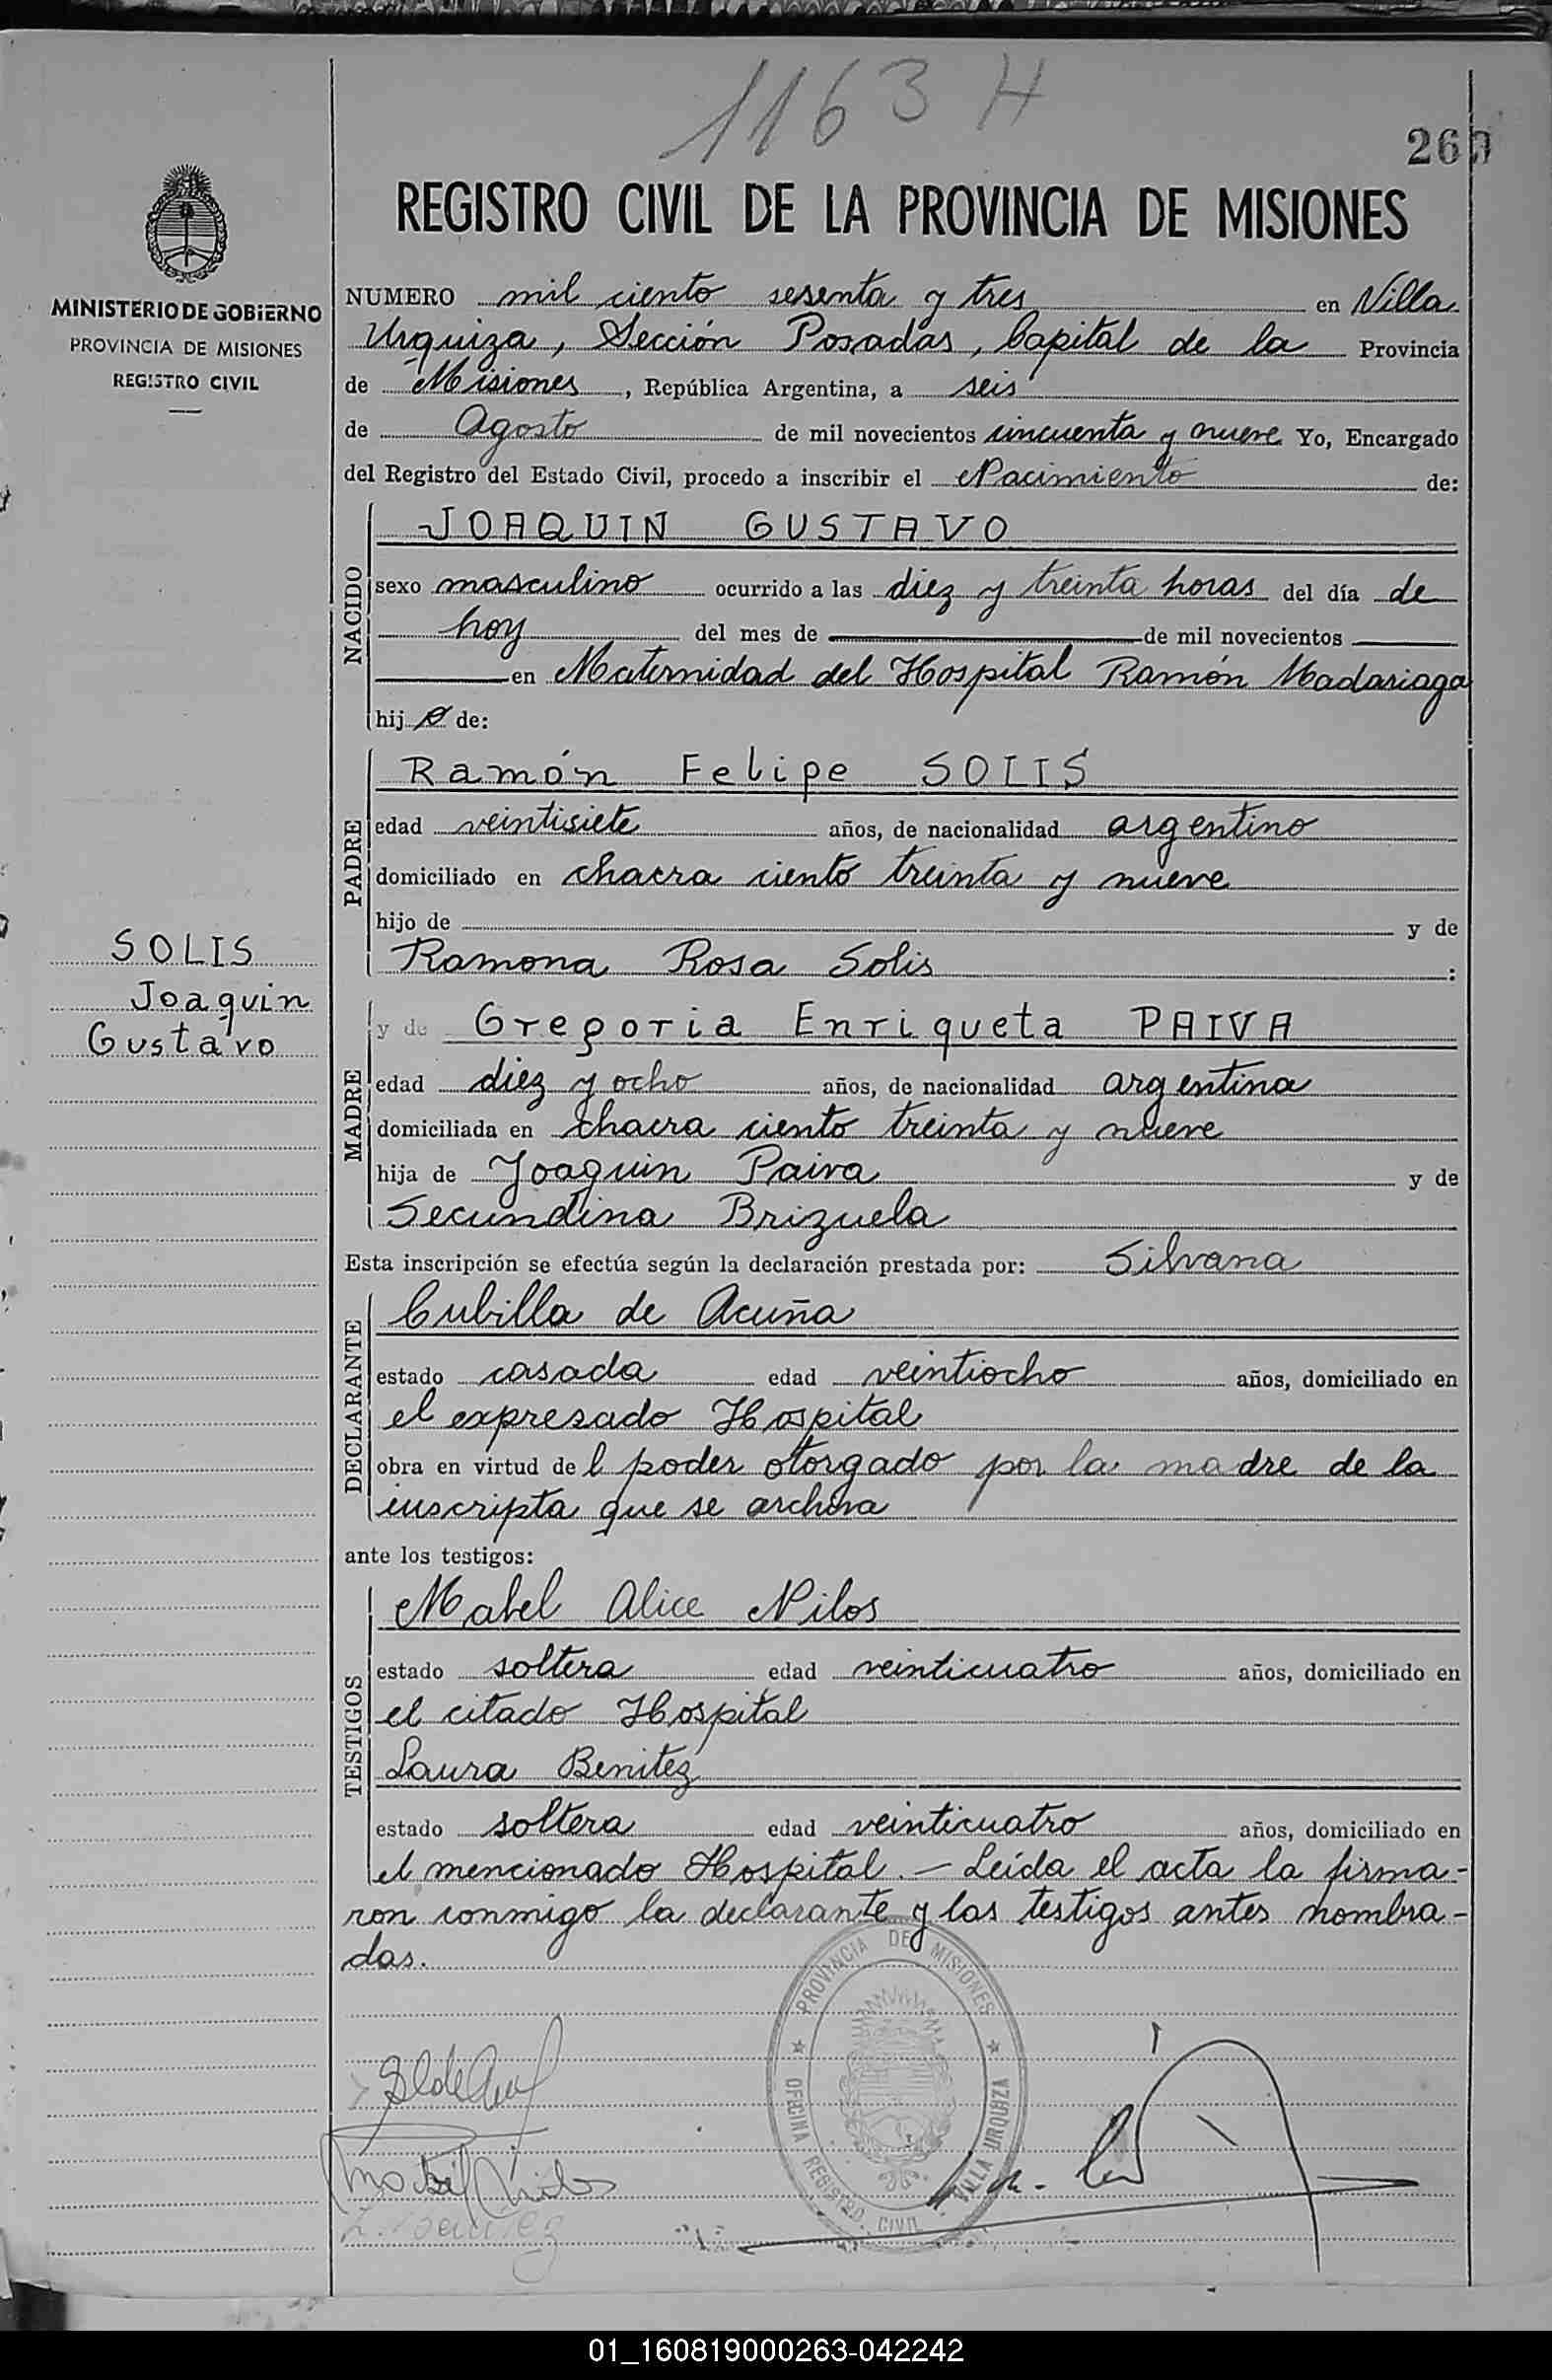 1163 H
260
REGISTRO CIVIL DE LA PROVINCIA DE MISIONES
MINISTERIO DE GOBIERNO
PROVINCIA DE MISIONES
REGISTRO CIVIL
NUMERO mil ciento sesenta y tres en Villa
Urquiza, Sección Posadas, Capital de la Provincia
de Misiones, República Argentina, a seis
de Agosto de mil novecientos cincuenta y nueve Yo, Encargado
del Registro del Estado Civil, procedo a inscribir el Nacimiento de:
NACIDO
JOAQUIN GUSTAVO
sexo masculino ocurrido a las diez y treinta horas del día de
hoy del mes de de mil novecientos
en Maternidad del Hospital Ramón Madariaga
hijo de:
PADRE
Ramón Felipe SOLIS
edad veintisiete años, de nacionalidad argentino
domiciliado en chacra ciento treinta y nueve
hijo de y de
Ramona Rosa Solis :
SOLIS
Joaquin
Gustavo
MADRE
y de Gregoria Enriqueta PAIVA
edad diez y ocho años, de nacionalidad argentina
domiciliada en chacra ciento treinta y nueve
hija de Joaquin Paiva y de
Secundina Brizuela
Esta inscripción se efectúa según la declaración prestada por: Silvana
DECLARANTE
Cubilla de Acuña
estado casada edad veintiocho años, domiciliado en
el expresado Hospital
obra en virtud del poder otorgado por la madre de la
inscripta que se archiva
ante los testigos:
TESTIGOS
Mabel Alice Nilos
estado soltera edad veinticuatro años, domiciliado en
el citado Hospital
Laura Benitez
estado soltera edad veinticuatro años, domiciliado en
el mencionado Hospital.— Leída el acta la firma-
ron conmigo la declarante y las testigos antes nombra-
das.
PROVINCIA DE MISIONES
OFICINA REGISTRO CIVIL VILLA URQUIZA
Mabel Nilos
L. Benitez
01_160819000263-042242